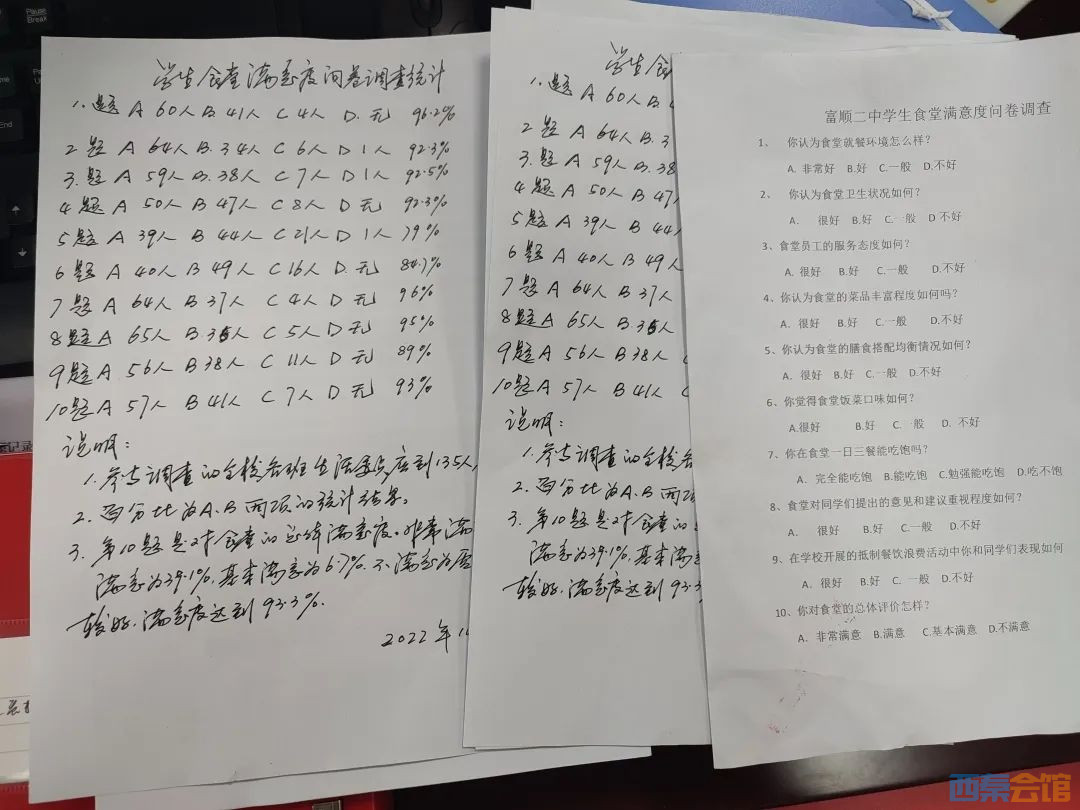 学生食堂满意度问卷调查统计
1.题 A 60人 B 41人 C 4人 D.无 96.2%
2题 A 64人 B.34人 C 6人 D 1人 92.3%
3.题 A 59人 B.38人 C 7人 D 1人 92.5%
4题 A 50人 B 47人 C 8人 D 无 92.3%
5题 A 39人 B 44人 C 21人 D 1人 79%
6题 A 40人 B 49人 C 16人 D.无 84.7%
7题 A 64人 B 37人 C 4人 D 无 96%
8题 A 65人 B 35人 C 5人 D 无 95%
9题 A 56人 B 38人 C 11人 D 无 89%
10题 A 57人 B 41人 C 7人 D 无 93%
说明:
1.参与调查的全校各班生活委员应到135人,
2.百分比为A、B两项的统计结果。
3.第10题是对食堂的总体满意度。非常满
满意为39.1%,基本满意为6.7%.不满意为零
较好.满意度达到93.3%.
2022年
学生食
1.题 A 60人 B
2题 A 64人 B.3
3.题 A 59人 B.38
4题 A 50人 B 47
5题 A 39人 B 44
6题 A 40人 B 49人
7题 A 64人 B 37人
8题 A 65人 B 35人
9题 A 56人 B 38人
10题 A 57人 B 41人
说明:
1.参与调查的全校各
2.百分比为A、B两项
3.第10题是对食堂的
满意为39.1%,基本满
较好.满意度达到93.3
富顺二中学生食堂满意度问卷调查
1、 你认为食堂就餐环境怎么样?
A. 非常好 B.好 C.一般 D.不好
2、 你认为食堂卫生状况如何?
A. 很好 B.好 C.一般 D 不好
3、食堂员工的服务态度如何?
A. 很好 B.好 C.一般 D.不好
4、你认为食堂的菜品丰富程度如何吗?
A. 很好 B.好 C.一般 D.不好
5、你认为食堂的膳食搭配均衡情况如何?
A. 很好 B.好 C.一般 D.不好
6、你觉得食堂饭菜口味如何?
A.很好 B.好 C. 一般 D. 不好
7、你在食堂一日三餐能吃饱吗?
A. 完全能吃饱 B.能吃饱 C.勉强能吃饱 D.吃不饱
8、食堂对同学们提出的意见和建议重视程度如何?
A. 很好 B.好 C.一般 D.不好
9、在学校开展的抵制餐饮浪费活动中你和同学们表现如何
A. 很好 B.好 C. 一般 D.不好
10、你对食堂的总体评价怎样?
A. 非常满意 B.满意 C.基本满意 D.不满意
Pause
Break
End
记录
西秦会馆